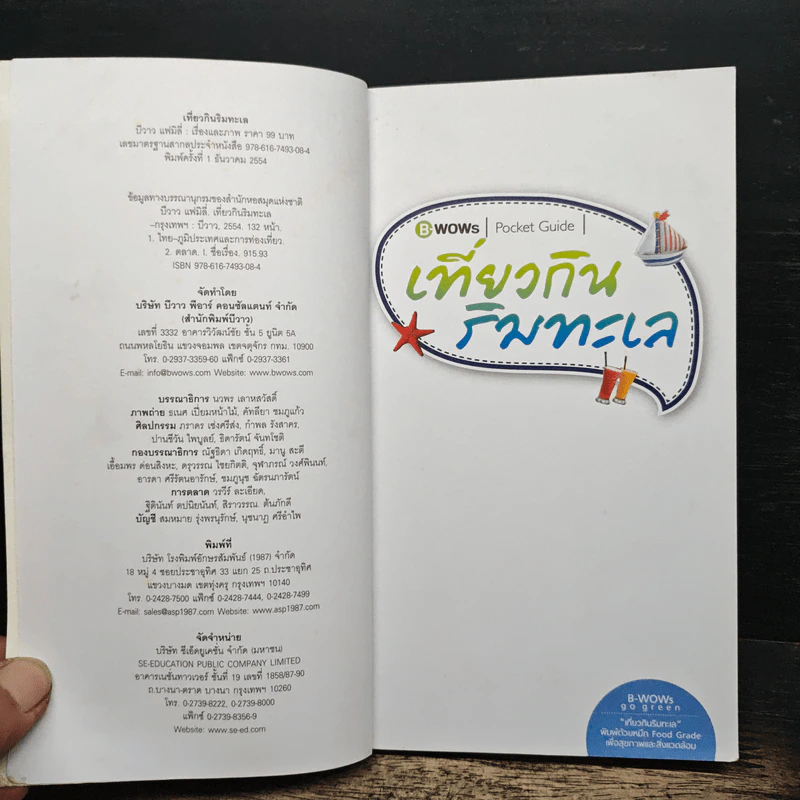 เที่ยวกินริมทะเล
บีวาว แฟมิลี่ : เรื่องและภาพ ราคา 99 บาท
เลขมาตรฐานสากลประจำหนังสือ 978-616-7493-08-4
พิมพ์ครั้งที่ 1 ธันวาคม 2554
ข้อมูลทางบรรณานุกรมของสำนักหอสมุดแห่งชาติ
บีวาว แฟมิลี่. เที่ยวกินริมทะเล
-กรุงเทพฯ : บีวาว, 2554. 132 หน้า.
1. ไทย-ภูมิประเทศและการท่องเที่ยว.
2. ตลาด. I. ชื่อเรื่อง. 915.93
ISBN 978-616-7493-08-4
จัดทำโดย
บริษัท บีวาว พีอาร์ คอนซัลแตนท์ จำกัด
(สำนักพิมพ์บีวาว)
เลขที่ 3332 อาคารวิวัฒน์ชัย ชั้น 5 ยูนิต 5A
ถนนพหลโยธิน แขวงจอมพล เขตจตุจักร กทม. 10900
โทร. 0-2937-3359-60 แฟ็กซ์ 0-2937-3361
E-mail: info@bwows.com Website: www.bwows.com
บรรณาธิการ นวพร เลาหสวัสดิ์
ภาพถ่าย ธเนศ เปี่ยมหน้าไม้, คัทลียา ชมภูแก้ว
ศิลปกรรม ภราดร เช่งศรีส่ง, กำพล รังสาคร,
ปานชีวัน ไพบูลย์, ธิดารัตน์ จันทโชติ
กองบรรณาธิการ ณัฐธิดา เกิดฤทธิ์, มานู สะตี
เอื้อมพร ด่อนสิงหะ, ดรุวรรณ ไชยกิตติ, จุฬาภรณ์ วงศ์พินนท์,
อารดา ศรีรัตนอารักษ์, ชมภูนุช ฉัตรนภารัตน์
การตลาด วรวีร์ ละเอียด,
ฐิตินันท์ ดปนียนันท์, สิราวรรณ. ต้นภักดี
บัญชี สมหมาย รุ่งพนุรักษ์, นุชนาฏ ศรีอำไพ
พิมพ์ที่
บริษัท โรงพิมพ์อักษรสัมพันธ์ (1987) จำกัด
18 หมู่ 4 ซอยประชาอุทิศ 33 แยก 25 ถ.ประชาอุทิศ
แขวงบางมด เขตทุ่งครุ กรุงเทพฯ 10140
โทร. 0-2428-7500 แฟ็กซ์ 0-2428-7444, 0-2428-7499
E-mail: sales@asp1987.com Website: www.asp1987.com
จัดจำหน่าย
บริษัท ซีเอ็ดยูเคชั่น จำกัด (มหาชน)
SE-EDUCATION PUBLIC COMPANY LIMITED
อาคารเนชั่นทาวเวอร์ ชั้นที่ 19 เลขที่ 1858/87-90
ถ.บางนา-ตราด บางนา กรุงเทพฯ 10260
โทร. 0-2739-8222, 0-2739-8000
แฟ็กซ์ 0-2739-8356-9
Website: www.se-ed.com
B-WOWs | Pocket Guide |
เที่ยวกิน
ริมทะเล
B-WOWs
go green
"เที่ยวกินริมทะเล"
พิมพ์ด้วยหมึก Food Grade
เพื่อสุขภาพและสิ่งแวดล้อม